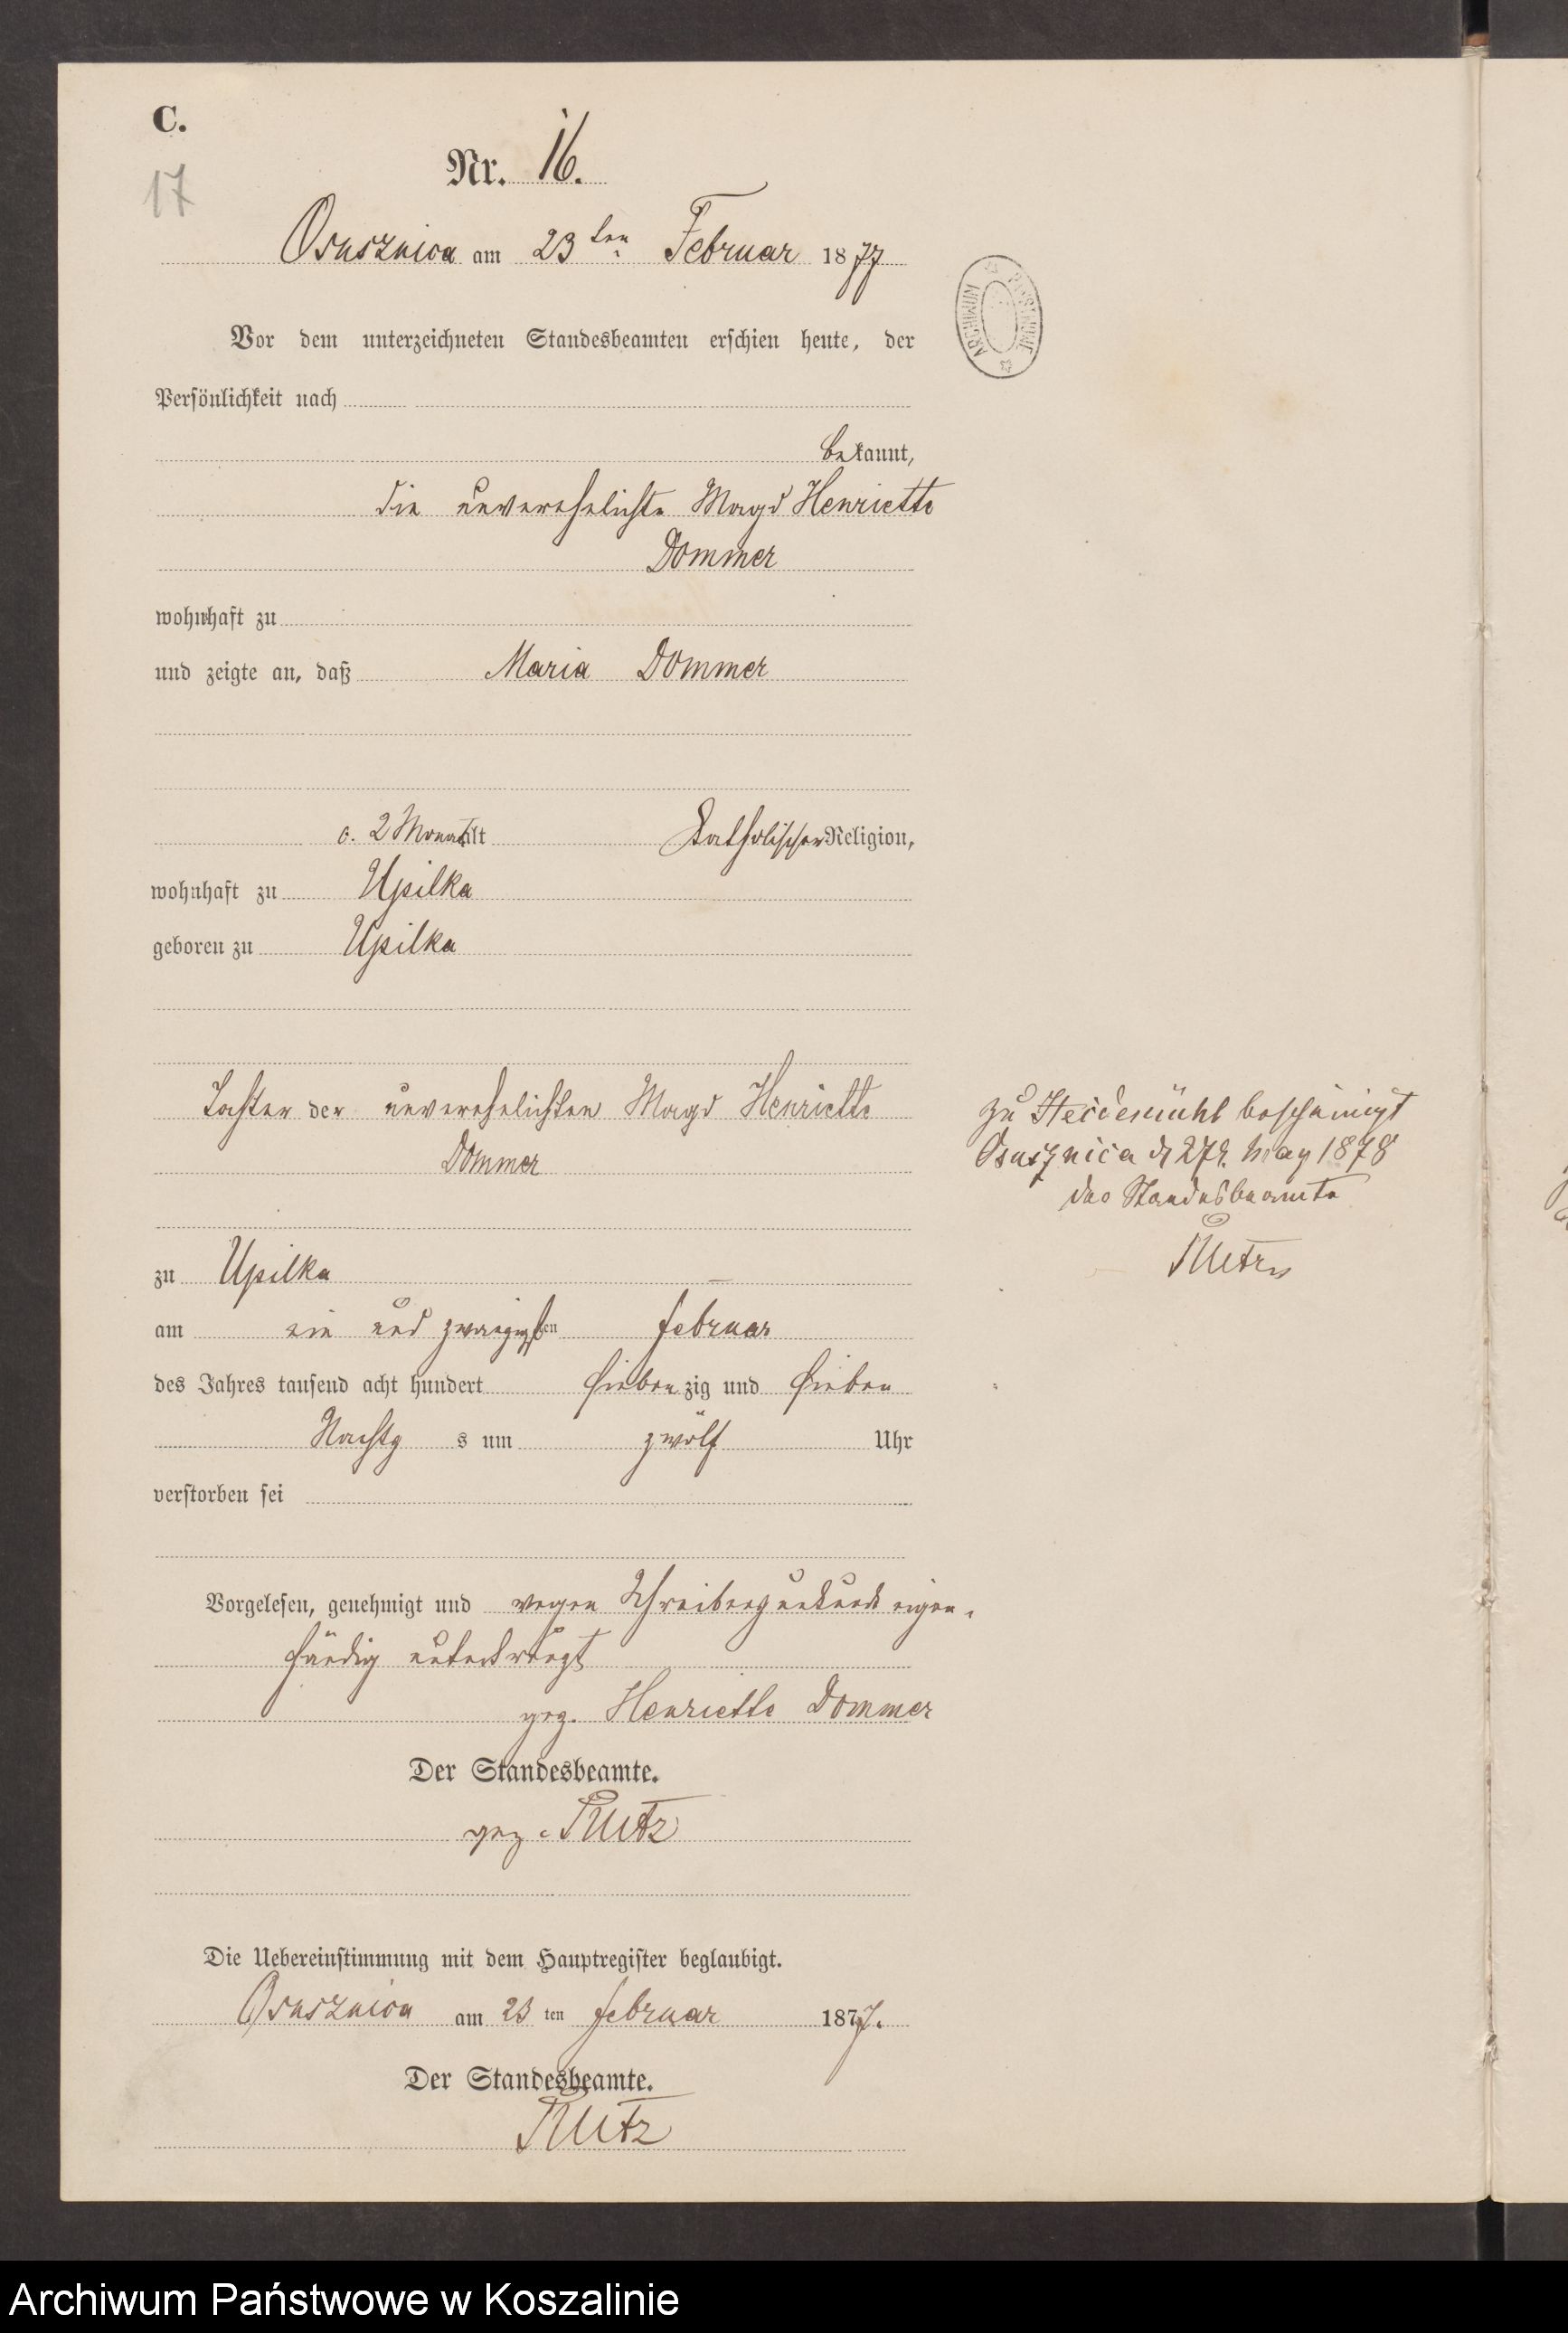 C.
17
Nr. 16.
Osusznica am 23ten Februar 1877
ARCHIWUM PAŃSTWOWE
Vor dem unterzeichneten Standesbeamten erschien heute, der
Persönlichkeit nach
bekannt,
die unverehelichte Magd Henriette
Dommer
wohnhaft zu
und zeigte an, daß Maria Dommer
c. 2 Monat alt Katholischer Religion,
wohnhaft zu Upilka
geboren zu Upilka
Tochter der unverehelichten Magd Henriette
Dommer
zu Heidemühl bescheinigt
Osusznica d 27t. May 1878
der Standesbeamte
Rutz
zu Upilka
am ein und zwanzigsten Februar
des Jahres tausend acht hundert siebenzig und sieben
Nachts um zwölf Uhr
verstorben sei
Vorgelesen, genehmigt und wegen eigen-
händig
gez. Henriette Dommer
Der Standesbeamte.
gez. Rutz
Die Uebereinstimmung mit dem Hauptregister beglaubigt.
Osusznica am 23ten Februar 1877.
Der Standesbeamte.
Rutz
Archiwum Państwowe w Koszalinie